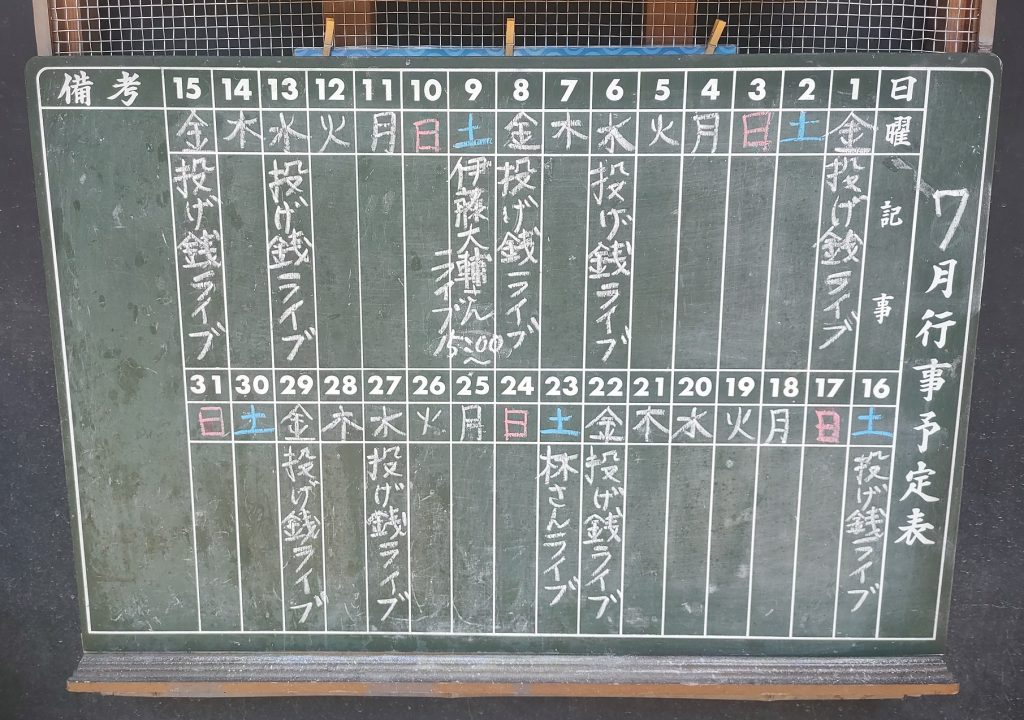 7月行事予定表
日曜 記事
1 金 投げ銭ライブ
2 土
3 日
4 月
5 火
6 水 投げ銭ライブ
7 木
8 金 投げ銭ライブ
9 土 伊藤大輔さん
ライブ
5:00〜
10 日
11 月
12 火
13 水 投げ銭ライブ
14 木
15 金 投げ銭ライブ
備考
16 土 投げ銭ライブ
17 日
18 月
19 火
20 水
21 木
22 金 投げ銭ライブ
23 土 林さんライブ
24 日
25 月
26 火
27 水 投げ銭ライブ
28 木
29 金 投げ銭ライブ
30 土
31 日